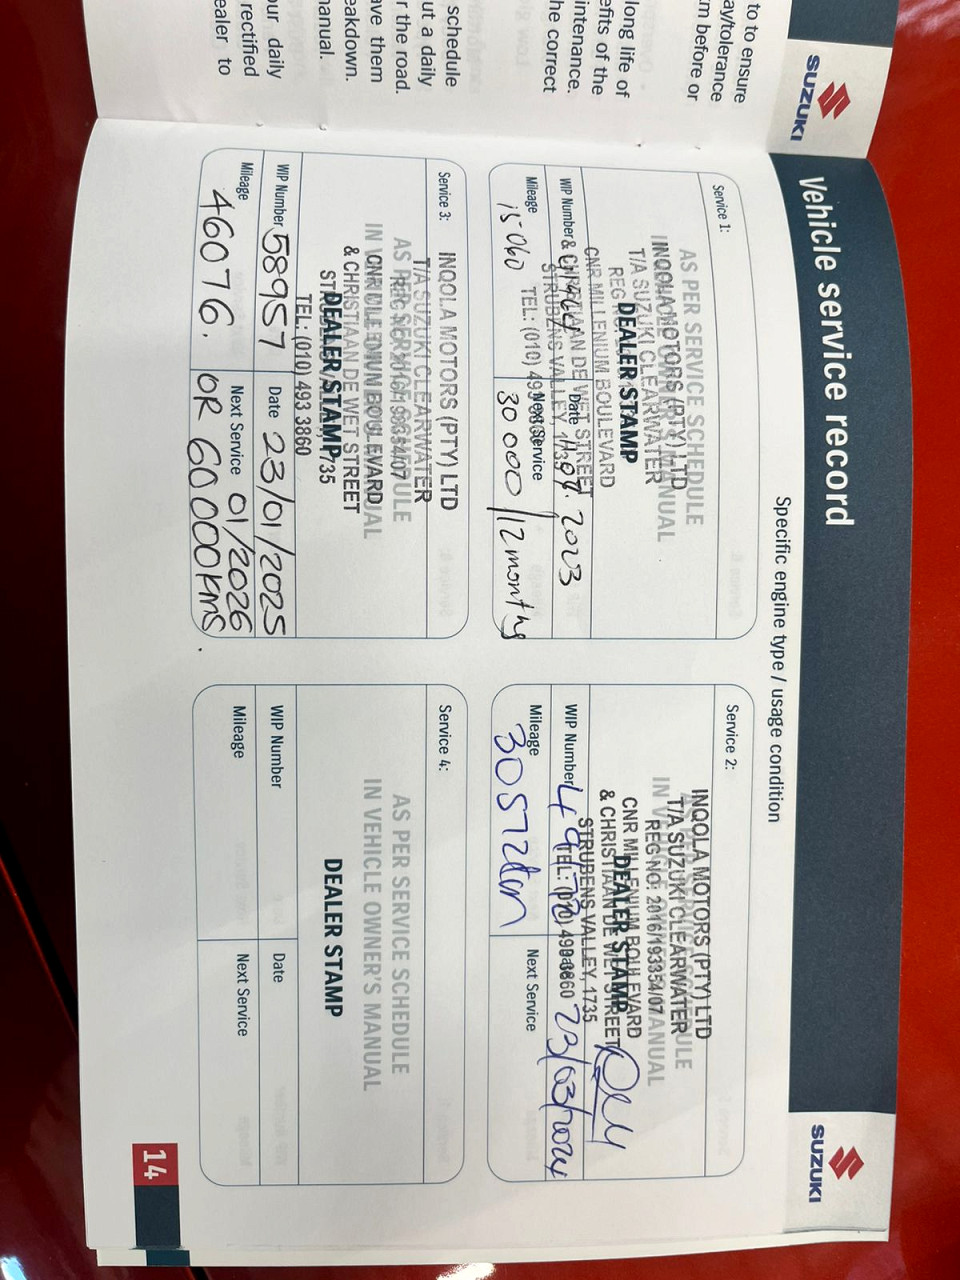 to to ensure
ay/tolerance
m before or
long life of
efits of the
intenance.
he correct
schedule
ut a daily
r the road.
ave them
eakdown.
anual.
our daily
rectified
ealer to
SUZUKI
Vehicle service record
SUZUKI
Specific engine type / usage condition
Service 1:
AS PER SERVICE SCHEDULE
INQOLA MOTORS (PTY) LTD
T/A SUZUKI CLEARWATER
DEALER STAMP
CNR MILLENIUM BOULEVARD
& CHRISTIAAN DE WET STREET
STRUBENS VALLEY, 1735
TEL: (010) 493 3860
WIP Number
Date 2023
Mileage 15060
Next Service 30 000 / 12 months
Service 2:
INQOLA MOTORS (PTY) LTD
T/A SUZUKI CLEARWATER
REG NO: 2016/193354/07
CNR MILLENIUM BOULEVARD
& CHRISTIAAN DE WET STREET
DEALER STAMP
STRUBENS VALLEY, 1735
TEL: (010) 493 3860
WIP Number
Date 23/03/2024
Mileage 30572km
Next Service
Service 3:
INQOLA MOTORS (PTY) LTD
T/A SUZUKI CLEARWATER
AS PER SERVICE SCHEDULE
REG NO: 2016/193354/07
CNR MILLENIUM BOULEVARD
& CHRISTIAAN DE WET STREET
DEALER STAMP
STRUBENS VALLEY, 1735
TEL: (010) 493 3860
WIP Number 58957
Date 23/01/2025
Mileage 46076.
Next Service 01/2026
OR 60 000KMS
Service 4:
AS PER SERVICE SCHEDULE
IN VEHICLE OWNER'S MANUAL
DEALER STAMP
WIP Number
Date
Mileage
Next Service
14